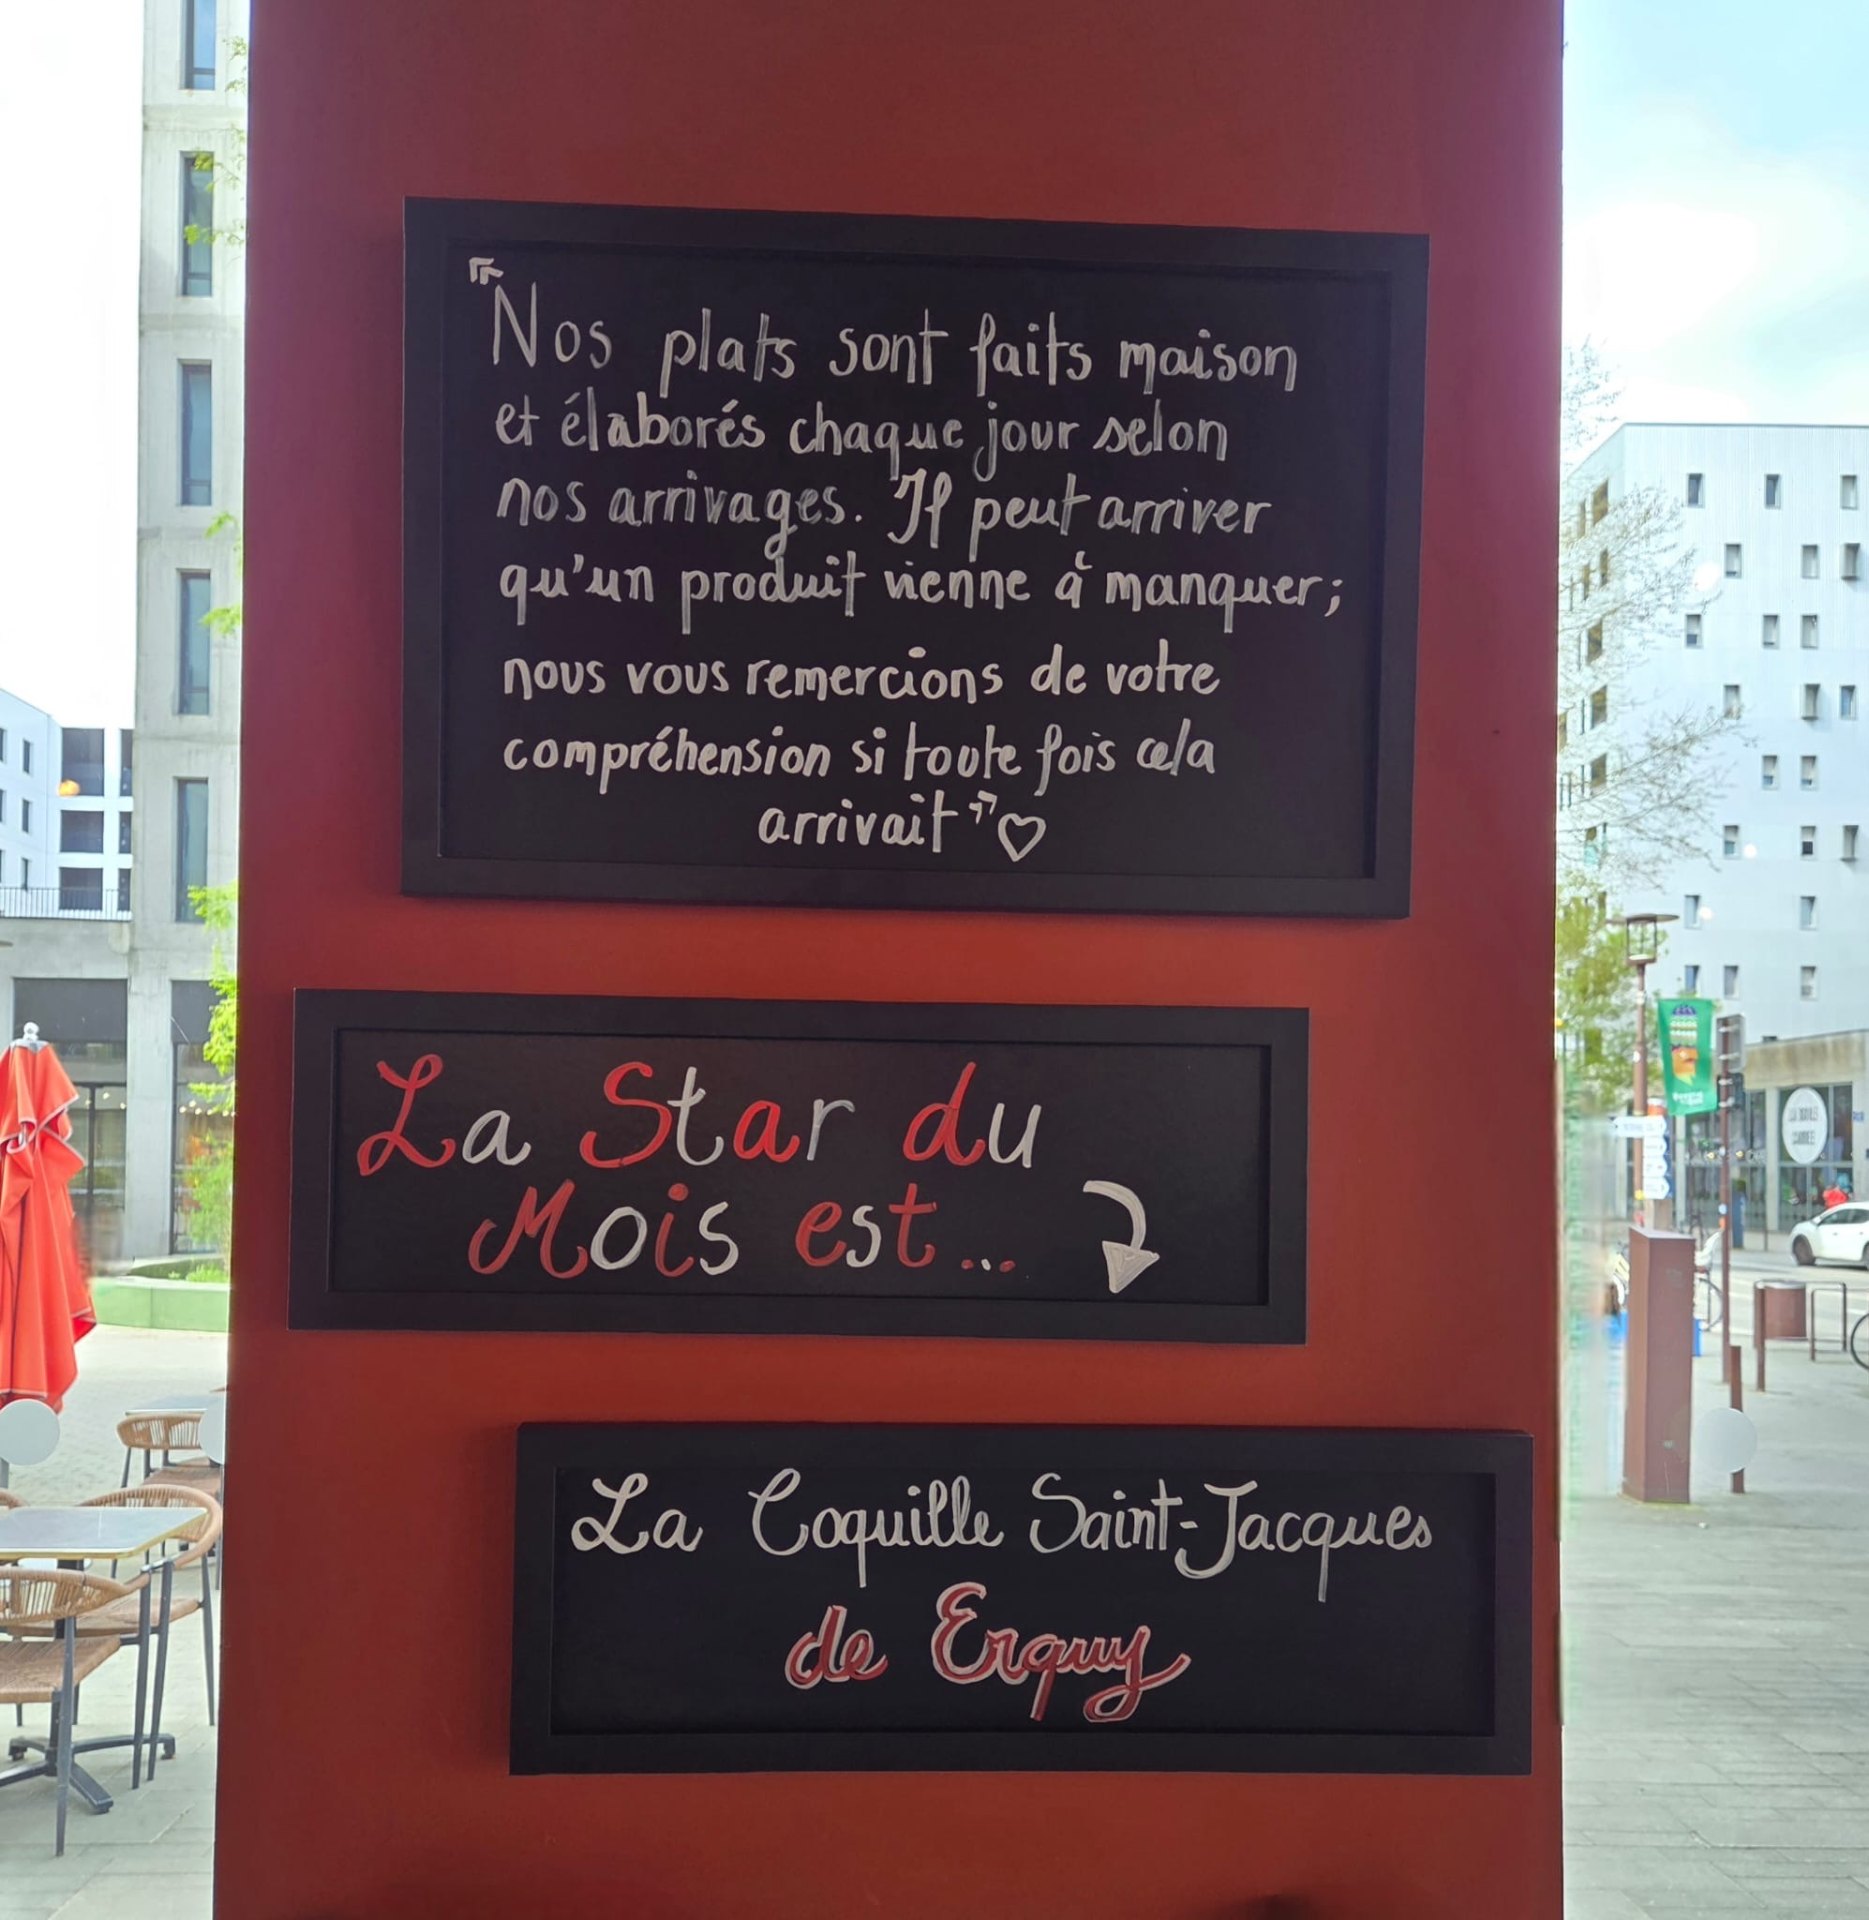 "Nos plats sont faits maison
et élaborés chaque jour selon
nos arrivages. Il peut arriver
qu'un produit vienne à manquer;
nous vous remercions de votre
compréhension si toute fois cela
arrivait"♡
La Star du
Mois est...
La Coquille Saint-Jacques
de Erquy